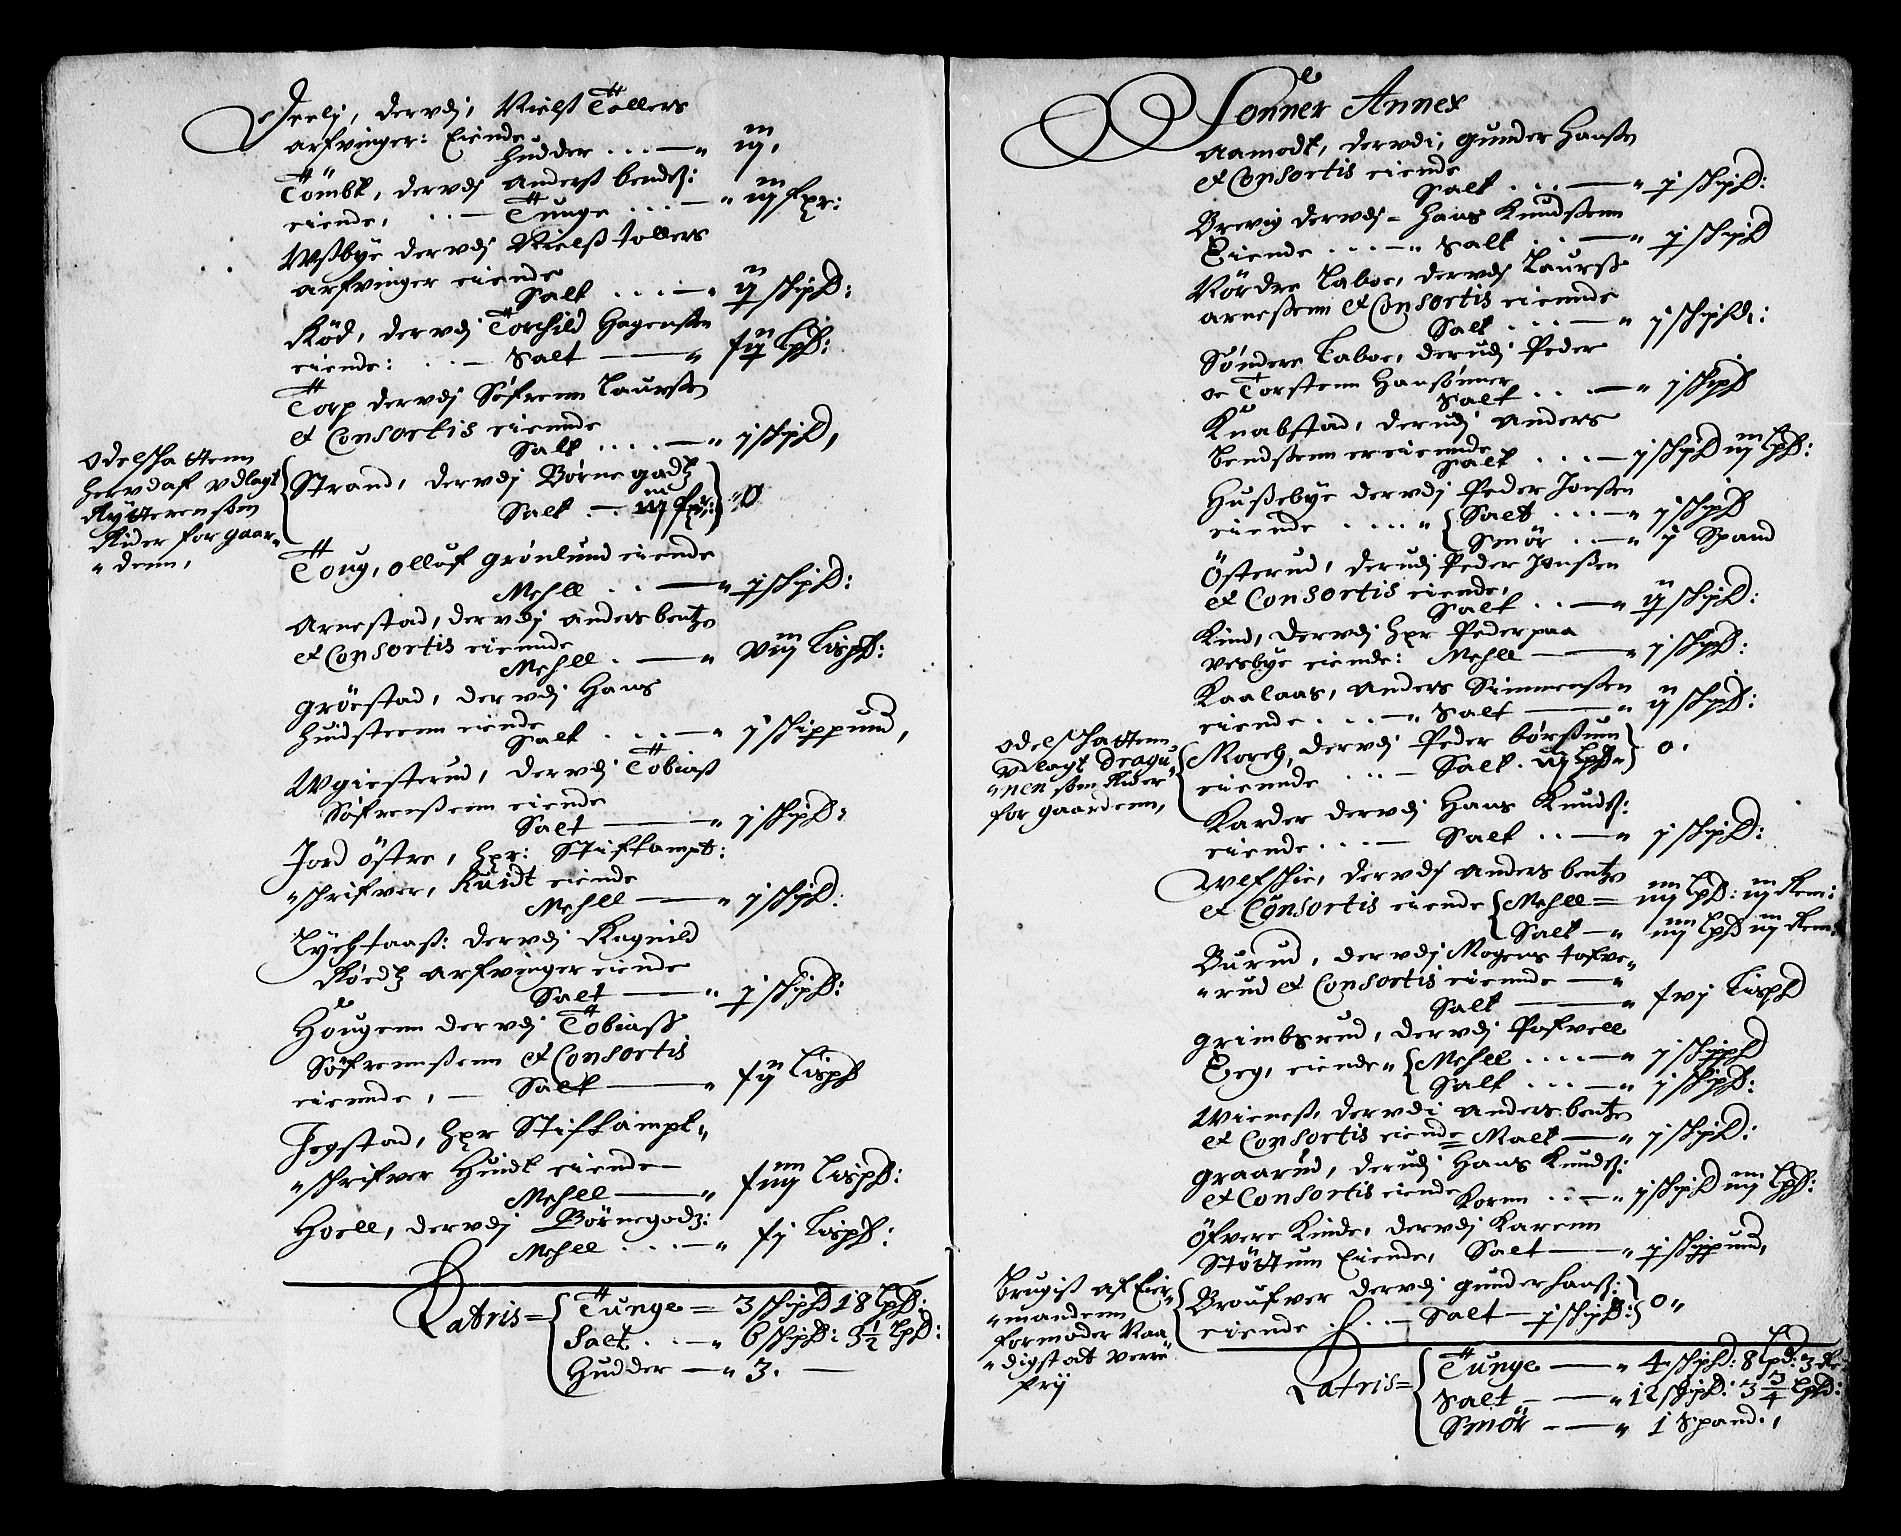 Jeelj, dervdj, Nielß Tollers
arfvinger: Eiende
Hudder . . . — „ iij,
Tömbt, dervdj Anderß bendß:
eiende, . . — Tunge . . . — „ iij fꝫr:
Wßbye dervdj Nielß tollers
arfvinger eiende
Salt . . . . — „ ij schipd:
Röd, dervdj Torchild Hagenßen
eiende: . . — Salt — „ xij lpd:
Torp dervdj Söfrenn Laurßen
et Consortis eiennde
Salt . . . . — „ j schipd,
odelschatten
herudaf udlagt
Rytterenßom
Rider for gaar„
„denn,
Strand, dervdj Börnegodtz
Salt . — „ 0
Toug, olluf grönlund eiende
Mehll . . — „ j schipd:
Arnestad, dervdj anders bentzøn
et Consortis eiennde
Mehll . — „ viij Lispd:
Gröestad, dervdj Hans
Huidsteenn eiende
Salt . . . — „ j schippund,
Wgiesterud, dervdj Tobiaß
Söfrenßenn eiende
Salt — „ j schipd:
Jord östre, Hꝫr: Stiftampt:
„schrifver, Huidt eiende
Mehll — „ j schipd:
Lychtaaß: dervdj Ragnild
Röedtz arfvinger eiende
Salt — „ j schipd:
Hougenn dervdj Tobiaß
Söfrennßenn et Consortis
eiennde, — Salt — „ xij Lispd
Jegstad, Hꝫr Stiftampt„
„schrifver Huidt eiende
Mehll — „ xiiij Lispd:
Hoell, dervdj Börnegodz:
Mehll . . . — „ xj Lispd:
Latris = Tunge = 3 schipd 18 lpd:
Salt . . — „ 6 schipd: 3½ lpd:
Hudder — „ 3. —
Sonner Annex
Aamodt, dervdj, gunder Hanßen
et Consortis eiende
Salt . . . — „ j schipd:
Brevig dervdj - Hans Knudßenn
Eiende . . . . — „ Salt . . — „ j schipd
Nördre Laboe, dervdj Laurß
arneßenn et Consortis eiennde
Salt . . . — „ j schipd:
Sönndere Laboe, derudj Peder
oc Torstenn Hansönner
Salt . . . — „ j schipd
Knabstad, derudj anders
bendßenn ereiennde
Salt . . . — j schipd iiij lpd:
Hußebye dervdj Peder Jonßen
eiende . . . . „ Salt . . . — „ j schipd
Smör . . — „ j Spand
Österud, derudj Peder Jonßen
et Consortis eiende,
Salt . . — „ ij schipd:
Kind, dervdj Hꝫr Peder paa
vesbye eiende: Mehll — „ j schipd:
Kaalaas, anders Simmenßen
eiende . . . — „ Salt — „ ij schipd:
odelschattenn
udlagt Dragu„
„nen som Rider
for gaardenn,
Morch, dervdj Peder börßum
eiennde . . . — Salt . iij lpd „ 0.
Karder dervdj Hans Knudß:
eiende . . . — Salt . . — „ j schipd:
Wlfschie, dervdj anders bentzøn
et Consortis eiende Mehll = iiij lpd: iij Rem:
Salt — „ iiij lpd iij Rem:
Burud, dervdj Mogens tofve„
„rud et Consortis eiennde — „
Salt — „ xvj Lispd
Grimbsrud, dervdj Pofvell
Eeg, eiende „ Mehll . . . . — „ j schippd
Salt . . . — „ j schipd:
Wieneß, dervdi anders bentzøn
et Consortis eiende = Malt — „ j schipd:
Graarud, derudj Hans Knudß:
et Consortis eiende
Korn . . — „ j schipd iiij lpd:
Öfvere Kinde, dervdj Karenn
Stöttum Eiende, Salt — „ j schippund,
brugiß af Eier„
„mandenn
formoder Naa„
„digst at verre
frij
Braufver dervdj gunder hanß:
eiende . . . — Salt — j schipd: 0 „
Latris = Tunge — „ 4 schipd: 8 lpd: 3 Re:
Salt — „ 12 schipd: 3¾ lpd:
Smör — „ 1 Spand.,